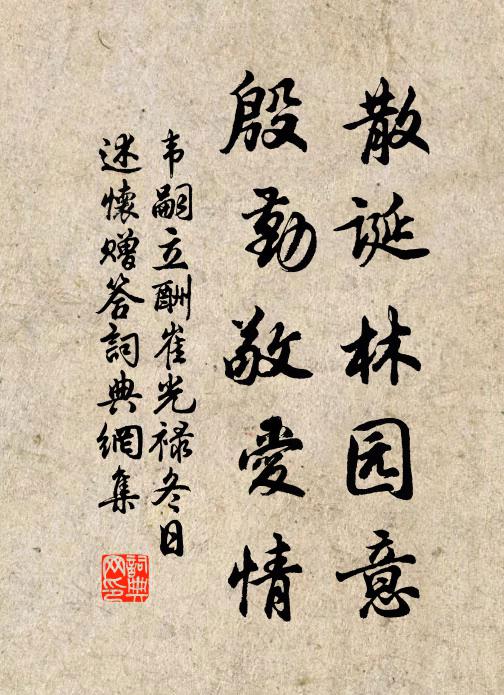 散诞林园意
殷勤敬爱情
韦嗣立酬崔光禄冬日
述懷赠答詞典網集
詞典
网印